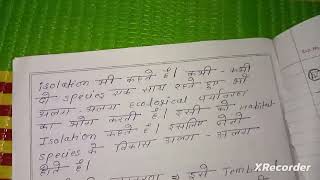 isolation भी कहते है। कभी - कभी
दो species एक साथ रहते हुए भी
अलग - अलग Ecological पर्यावरण
का भोग करती है। इसी को Habitat
Isolation कहते है। इसलिए दोनो
species के विकास अलग - अलग
होते है।
इसे
XRecorder